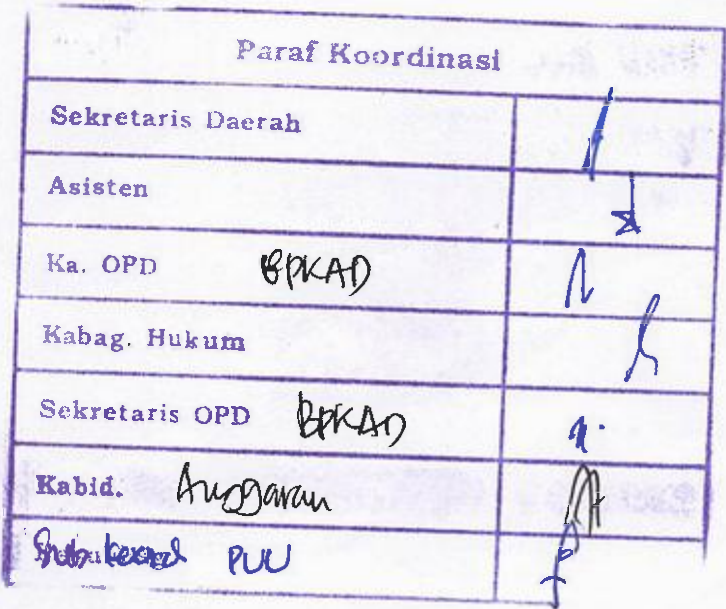 Paraf Koordinasi
Sekretaris Daerah
Asisten
Ka. OPD BPKAD
Kabag. Hukum
Sekretaris OPD BPKAD
Kabid. Anggaran
Sub PUU